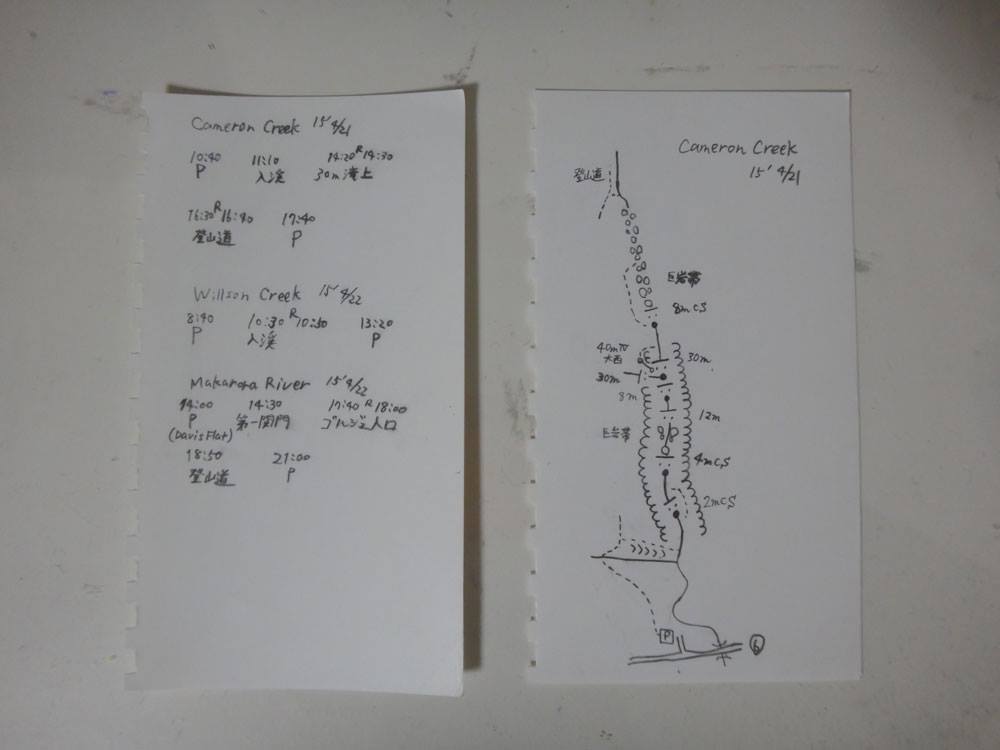 Cameron Creek 15' 4/21
10:40 11:10 14:20 R 14:30
P 入渓 30m滝上
16:30 R 16:40 17:40
登山道 P
Willson Creek 15' 4/22
8:40 10:30 R 10:50 13:20
P 入渓 P
Makarora River 15' 4/22
14:00 14:30 17:40 R 18:00
P 第一関門 ゴルジュ入口
(Davis Flat)
18:50 21:00
登山道 P
Cameron Creek
15' 4/21
登山道
巨岩帯
8mCS
40mTV
大西
30m
30m
8m
12m
巨岩帯
4mCS
2mCS
P
6